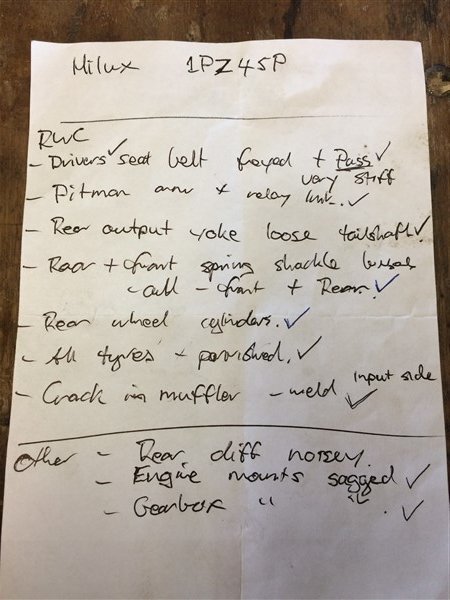 Hilux 1PZ45P
RWC
- Drivers✓ seat belt frayed + Pass ✓
very stiff
- Pitman arm + relay link. ✓
- Rear output yoke loose tailshaft ✓
- Rear + front spring shackle
call - front + Rear. ✓
- Rear wheel cylinders. ✓
- All tyres - perished. ✓
input side
- Crack in muffler - weld ✓
Other - Rear diff noisey.
- Engine mounts sagged ✓
- Gearbox " " ✓